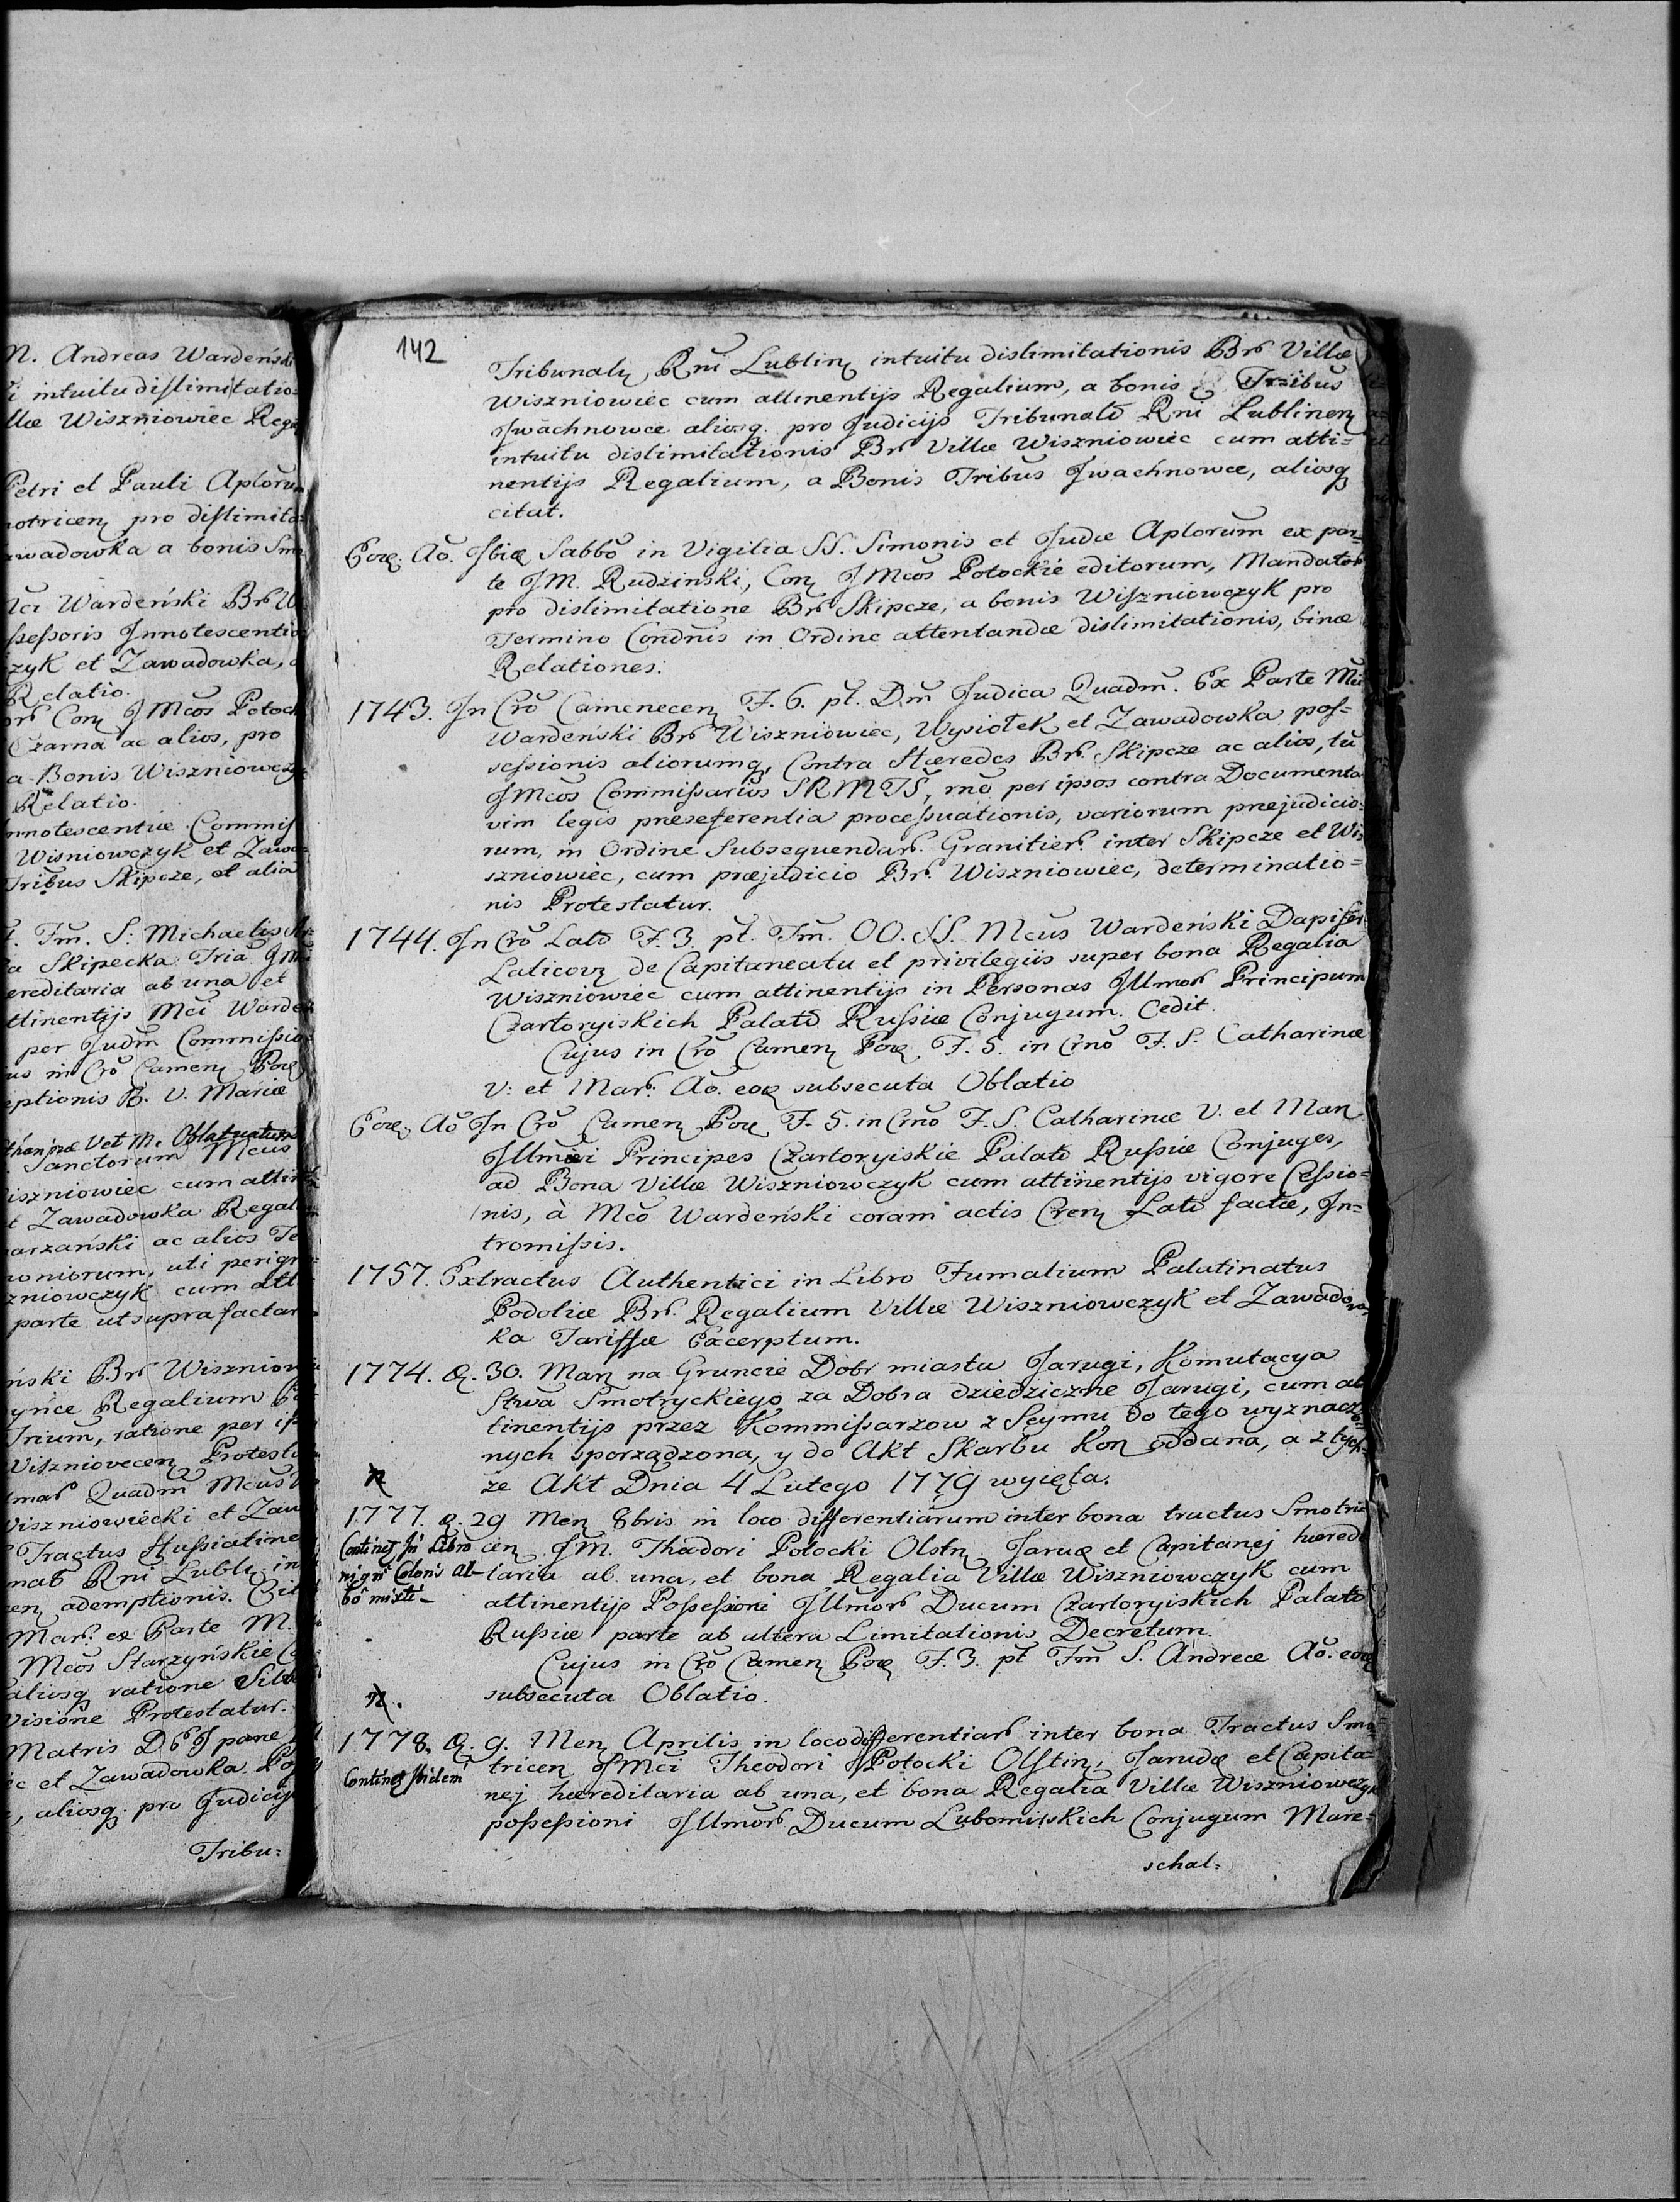 n. Andreas Wardeński
i intuitu dislimitatio=
llæ Wiszniowiec Rega
Petri et Pauli Aplorum
otricen pro dislimita=
awadowka a bonis Smo
Mci Wardeński Brŕ W
ssessoris Innotescentia
zyk et Zawadowka, a
Relatio.
Con JMcos Potock
Czarna ac alios, pro
a Bonis Wiszniowczyk
Relatio.
nnotescentiæ Commis
Wisniowczyk et Zawa=
Tribus Skipcze, et alia
Fm. S. Michaelis
a Skipecka Tria JM
ereditaria ab una et
ttinentijs Mci Warden
per Judm Commissio
us in Cro Camen Pod
eptionis B. V. Mariæ
tharinæ V et M. Oblatnatum
Sanctorum Mcus
iszniowiec cum attin
t Zawadowka Regal
arzański ac alios Te
oniorum, uti perigr
zniowczyk cum att
parte ut supra factar
ński Brŕ Wiszniow
yńce Regalium
Trium, ratione per ip
Wiszniovecen Protesta
Quadm Mcus
Wiszniowiecki et Zaw
Tractus Hussiatine
Rni Lubln in
cen ademptionis. Cit
Mar. ex Parte M.
Mcos Starzyńskie
aliosq ratione Silv
Visione Protestatur.
Matris D
c et Zawadowka Pos
, aliosq. pro Judicijs
Tribu=
142
Tribunaln Rni Lublinn intuitu dislimitationis Brŕ Villæ
Wiszniowiec cum attinentijs Regalium, a bonis Tribus
Jwachnowce aliosq. pro Judicijs Tribunalŏ Rni Lublinen
intuitu dislimitationis Brŕ Villæ Wiszniowiec cum atti=
nentijs Regalium, a Bonis Tribus Jwachnowce, aliosq
citat.
Eoꝝ. Ao. Jbiꝝ Sabbo in Vigilia SS. Simonis et Judæ Aplorum ex par=
te JM. Rudzinski, Con JMcos Potockie editorum, Mandator
pro dislimitatione Brŕ Skipcze, a bonis Wiszniowczyk pro
Termino Condnis in Ordine attentandæ dislimitationis, binæ
Relationes.
1743. In Cro Camenecen F. 6. pt. Dm Judica Quadm. Ex Parte Mci
Wardeński Brŕ Wiszniowiec, Wysiołek et Zawadowka pos=
sessionis aliorumq, Contra Hæredes Brŕ. Skipcze ac alios, tu
JMcos Commissarios SRMTS, rno per ipsos contra Documenta
vim legis præseferentia processuationis, variorum præjudicio=
rum, in Ordine Subsequendar. Granitier. inter Skipcze et Wi=
szniowiec, cum præjudicio Brŕ. Wiszniowiec, determinatio=
nis Protestatur.
1744. In Cro Latŏ F. 3. pt. Fm. OO. SS. Mcus Wardeński Dapifer
Laticovꝝ de Capitaneatu et privilegiis super bona Regalia
Wiszniowiec cum attinentijs in Personas Jllmor Principum
Czartoryiskich Palatŏ Russiæ Conjugum. Cedit.
Cujus in Cro Camen Poꝝ F. 5. in Crno F. S. Catharinæ
V: et Mar: Ao. eoꝝ subsecuta Oblatio
Eoꝝ. Ao In Cro Camen Poꝝ F. 5. in Crno F. S. Catharinæ V. et Man
Jllmi Principes Czartoryiskie Palatŏ Russiæ Conjuges,
ad Bona Villæ Wiszniowczyk cum attinentijs vigore Cessio=
nis, à Mco Wardeński coram actis Cren Latŏ factæ, In=
tromissis.
1757. Extractus Authentici in Libro Fumalium Palatinatus
Podoliæ Brŕ. Regalium Villæ Wiszniowczyk et Zawadow=
ka Tariffæ Excerptum.
1774. ꝝ. 30. Marꝝ na Gruncie Dobr miasta Jarugi, Komutacya
Stwa Smotryckiego za Dobra dziedziczne Jarugi, cum at
tinentijs przez Kommissarzow z Seymu do tego wyznaczo=
nych sporządzona, y do Akt Skarbu Kon oddana, a z tych=
że Akt Dnia 4 Lutego 1779 wyięta.
1777. ꝝ. 29 Menꝝ 8bris in loco differentiarum inter bona tractus Smotri
Continet In Libro cen JM. Theodori Potocki Olstn Jaruꝝ et Capitanej hæredi
nigri Coloris al- taria ab una, et bona Regalia Villæ Wiszniowczyk cum
bo mixti- attinentijs Possessioni Jllmor Ducum Czartoryiskich Palatŏ
Russiæ parte ab altera Limitationis Decretum.
Cujus in Cro Camen Poꝝ F. 3. pt Fm S. Andreæ Ao. eoꝝ
subsecuta Oblatio.
1778. ꝝ. 9. Menꝝ Aprilis in loco differentiar inter bona Tractus Smo=
tricen JMci Theodori Potocki Olstin, Jarudæ et Capita=
Continet ibidem nej hæreditaria ab una, et bona Regalia Villæ Wiszniowczyk
possessioni Jllmor Ducum Lubomirskich Conjugum Mare=
schal=